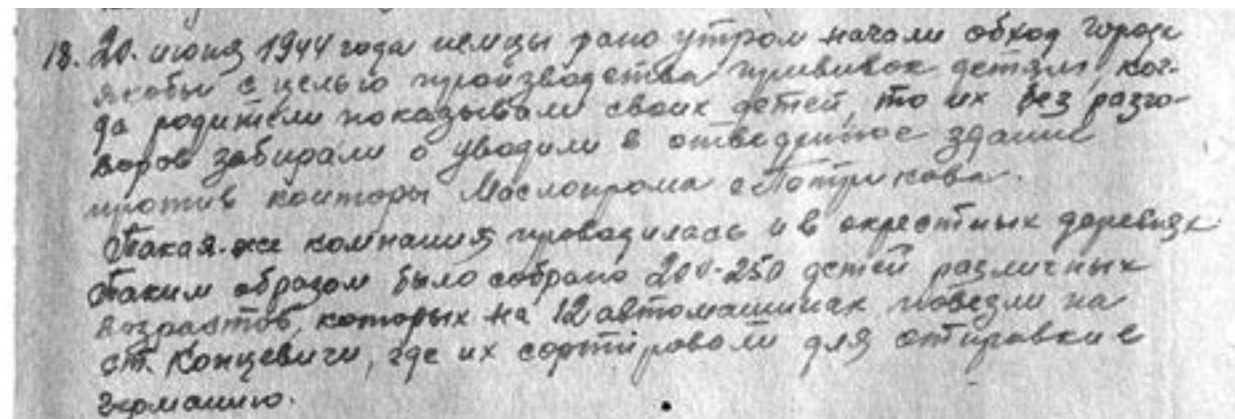 18. 20. июня 1944 года немцы рано утром начали обход города
якобы с целью производства прививок детям, ког-
да родители показывали своих детей, то их без разго-
воров забирали и уводили в отведенное здание
против конторы Маслопрома
Такая-же компания проводилась и в окрестных деревнях
Таким образом было собрано 200-250 детей различных
возрастов, которых на 12 автомашинах повезли на
ст. Концевичи, где их сортировали для отправки в
Германию.